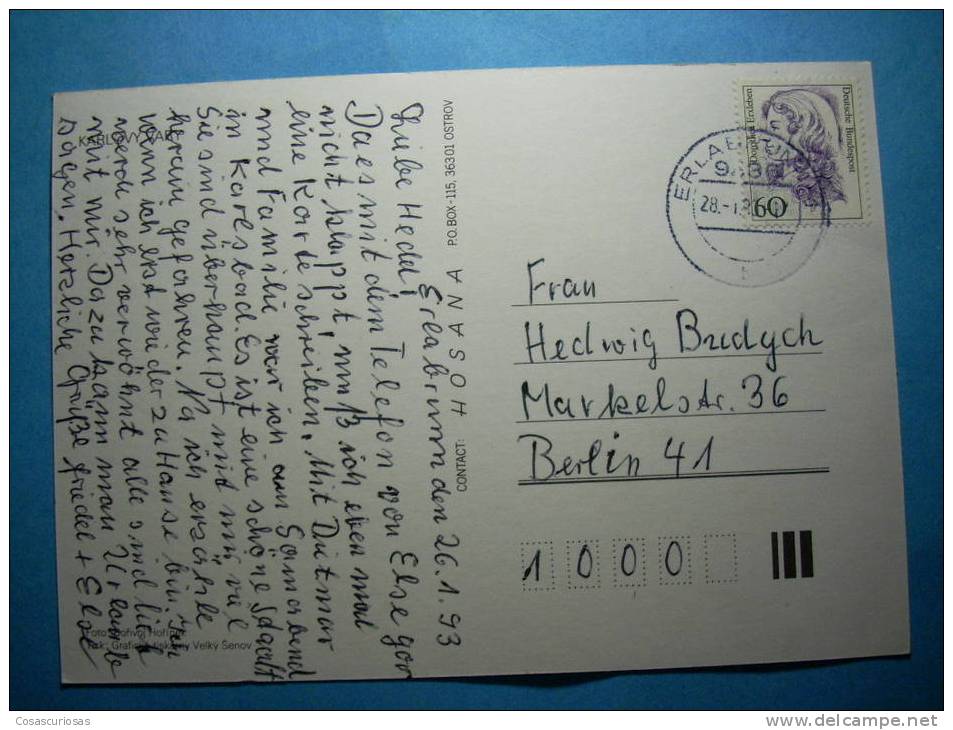 Erlabrunn den 26.1.93
Liebe Heddi!
Da es mit dem Telefon von Else gar
nicht klappt, muß ich eben mal
eine Karte schreiben. Mit Dietmar
und Familie war ich am Sonnabend
in Karlsbad. Es ist eine schöne Stadt
Sie sind überhaupt mit mir viel
herum gefahren. Na ich erzähle
wenn ich erst wieder zu Hause bin. Ich
werde sehr verwöhnt alle sind lieb
mit mir. Dazu kann man Urlaub
sagen. Herzliche Grüße Friedel + Else
KARLOVY VARY
Foto: Hořínek
Tisk: Grafické tiskárny Velký Šenov
CONTACT: HOSANA P.O.BOX-115, 36301 OSTROV
Deutsche Bundespost
Dorothea Erxleben
60
28.-1.
Frau
Hedwig Budych
Markelstr. 36
Berlin 41
1 0 0 0
Cosascuriosas
www.delcampe.net